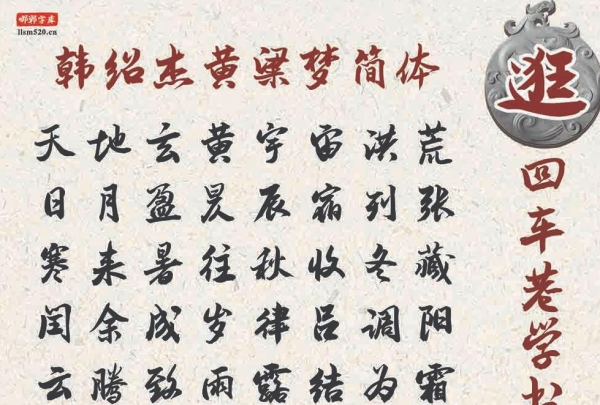 邯郸字库
llsm520.cn
韩绍杰黄粱梦简体
天地玄黄宇宙洪荒
日月盈昃辰宿列张
寒来暑往秋收冬藏
闰余成岁律吕调阳
云腾致雨露结为霜
逛
回车巷学书